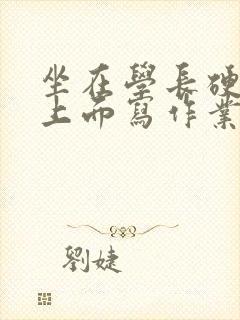 坐在學長硬
上而寫作業
劉婕